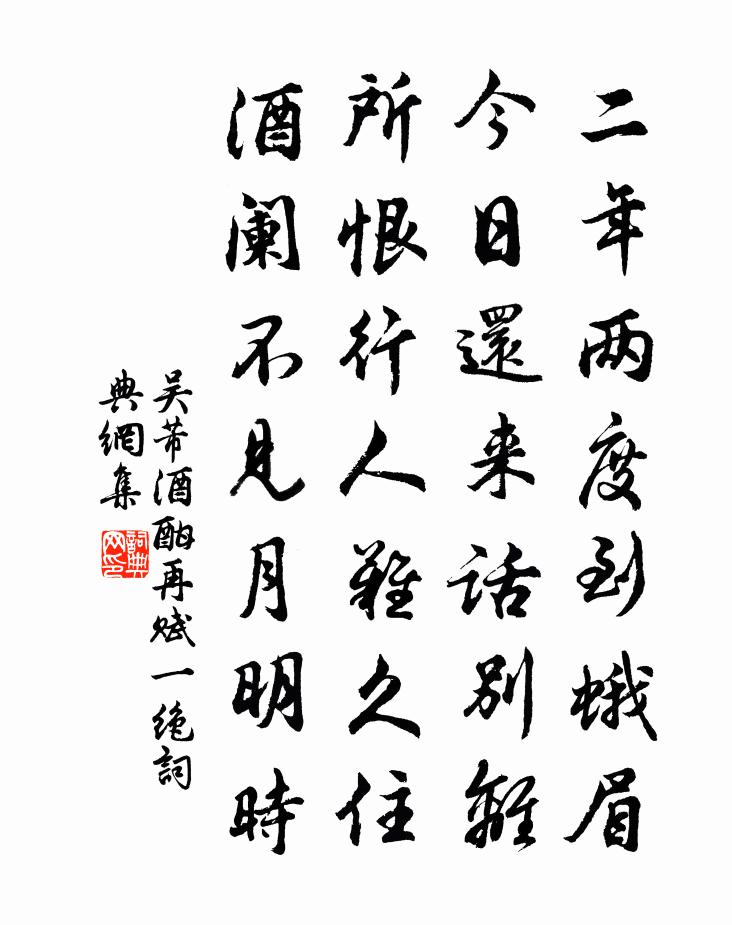 二年两度到蛾眉
今日還来話別離
所恨行人難久住
酒阑不见月明時
吴芾酒酣再赋一绝詞
典網集
詞典
网印